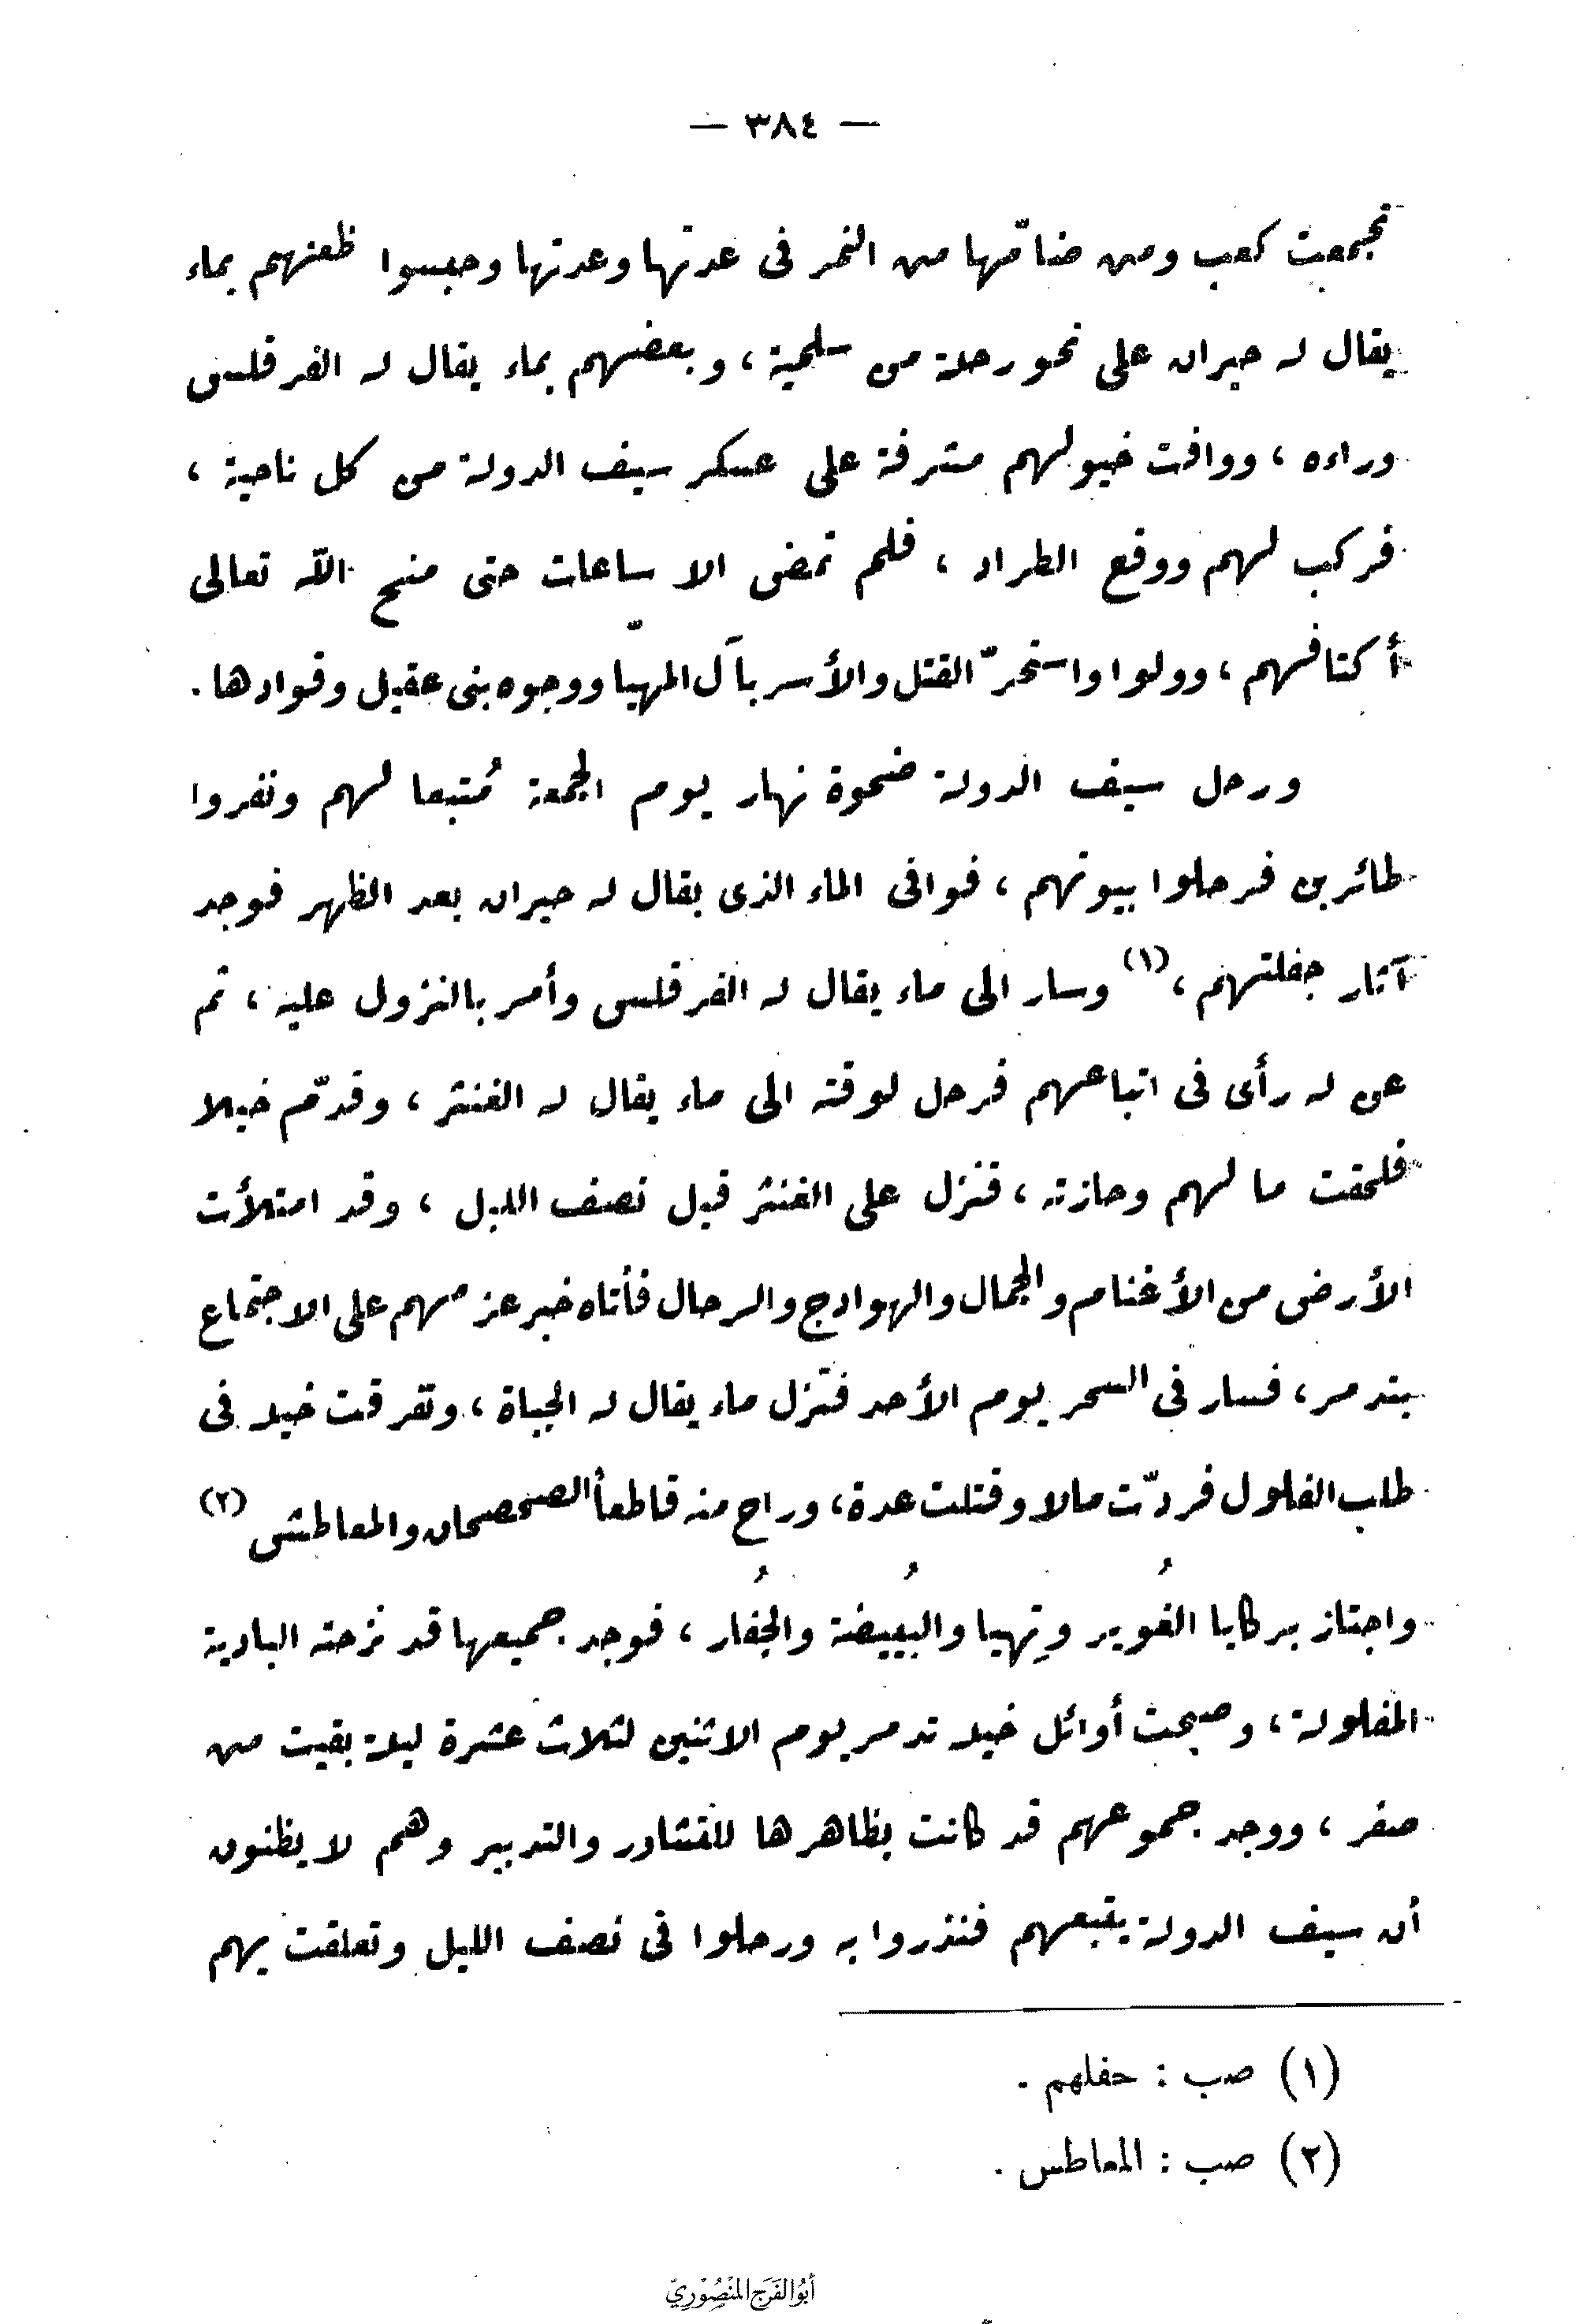 — ٣٨٤ —
تجمعت كعب ومن ضامّها من النمر فى عدتها وعدتها وحبسوا ظعنهم بماء
يقال له حيران على نحو رحلة من سلمية ، وبعضهم بماء يقال له الفرقلس
وراءه ، ووافت خيولهم مشرفة على عسكر سيف الدولة من كل ناحية ،
فركب لهم ووقع الطراد ، فلم تمض الا ساعات حتى منح الله تعالى
أكتافهم ، وولوا واستحرّ القتل والأسر بآل المهيا ووجوه بنى عقيل وقوادها .
ورحل سيف الدولة ضحوة نهار يوم الجمعة مُتبعا لهم ونفروا
طائرين فرحلوا بيوتهم ، فوافى الماء الذى يقال له حيران بعد الظهر فوجد
آثار جفلتهم ، (١) وسار الى ماء يقال له الفرقلس وأمر بالنزول عليه ، ثم
عن له رأى فى اتباعهم فرحل لوقته الى ماء يقال له الغنثر ، وقدّم خيلا
فلحقت ما لهم وحازته ، فنزل على الغنثر قبل نصف الليل ، وقد امتلأت
الأرض من الأغنام والجمال والهوادج والرحال فأتاه خبر عزمهم على الاجتماع
بتدمر ، فسار فى السحر يوم الأحد فنزل ماء يقال له الجباة ، وتفرقت خيله فى
طلب الفلول فردّت مالا وقتلت عدة ، وراح منه قاطعاً الصحصحان والمعاطش (٢)
واجتاز بركايا الغُوير ونِهيا والبُييضة والجُفار ، فوجد جميعها قد نزحته البادية
المفلولة ، وصبحت أوائل خيله تدمر يوم الاثنين لثلاث عشرة ليلة بقيت من
صفر ، ووجد جموعهم قد كانت بظاهرها للتشاور والتدبير وهم لا يظنون
أن سيف الدولة يتبعهم فنذروا به ورحلوا فى نصف الليل وتعلقت بهم
(١) صب : حفلهم .
(٢) صب : المعاطس .
أبُو الفَرَج المَنْصُوْرِيّ